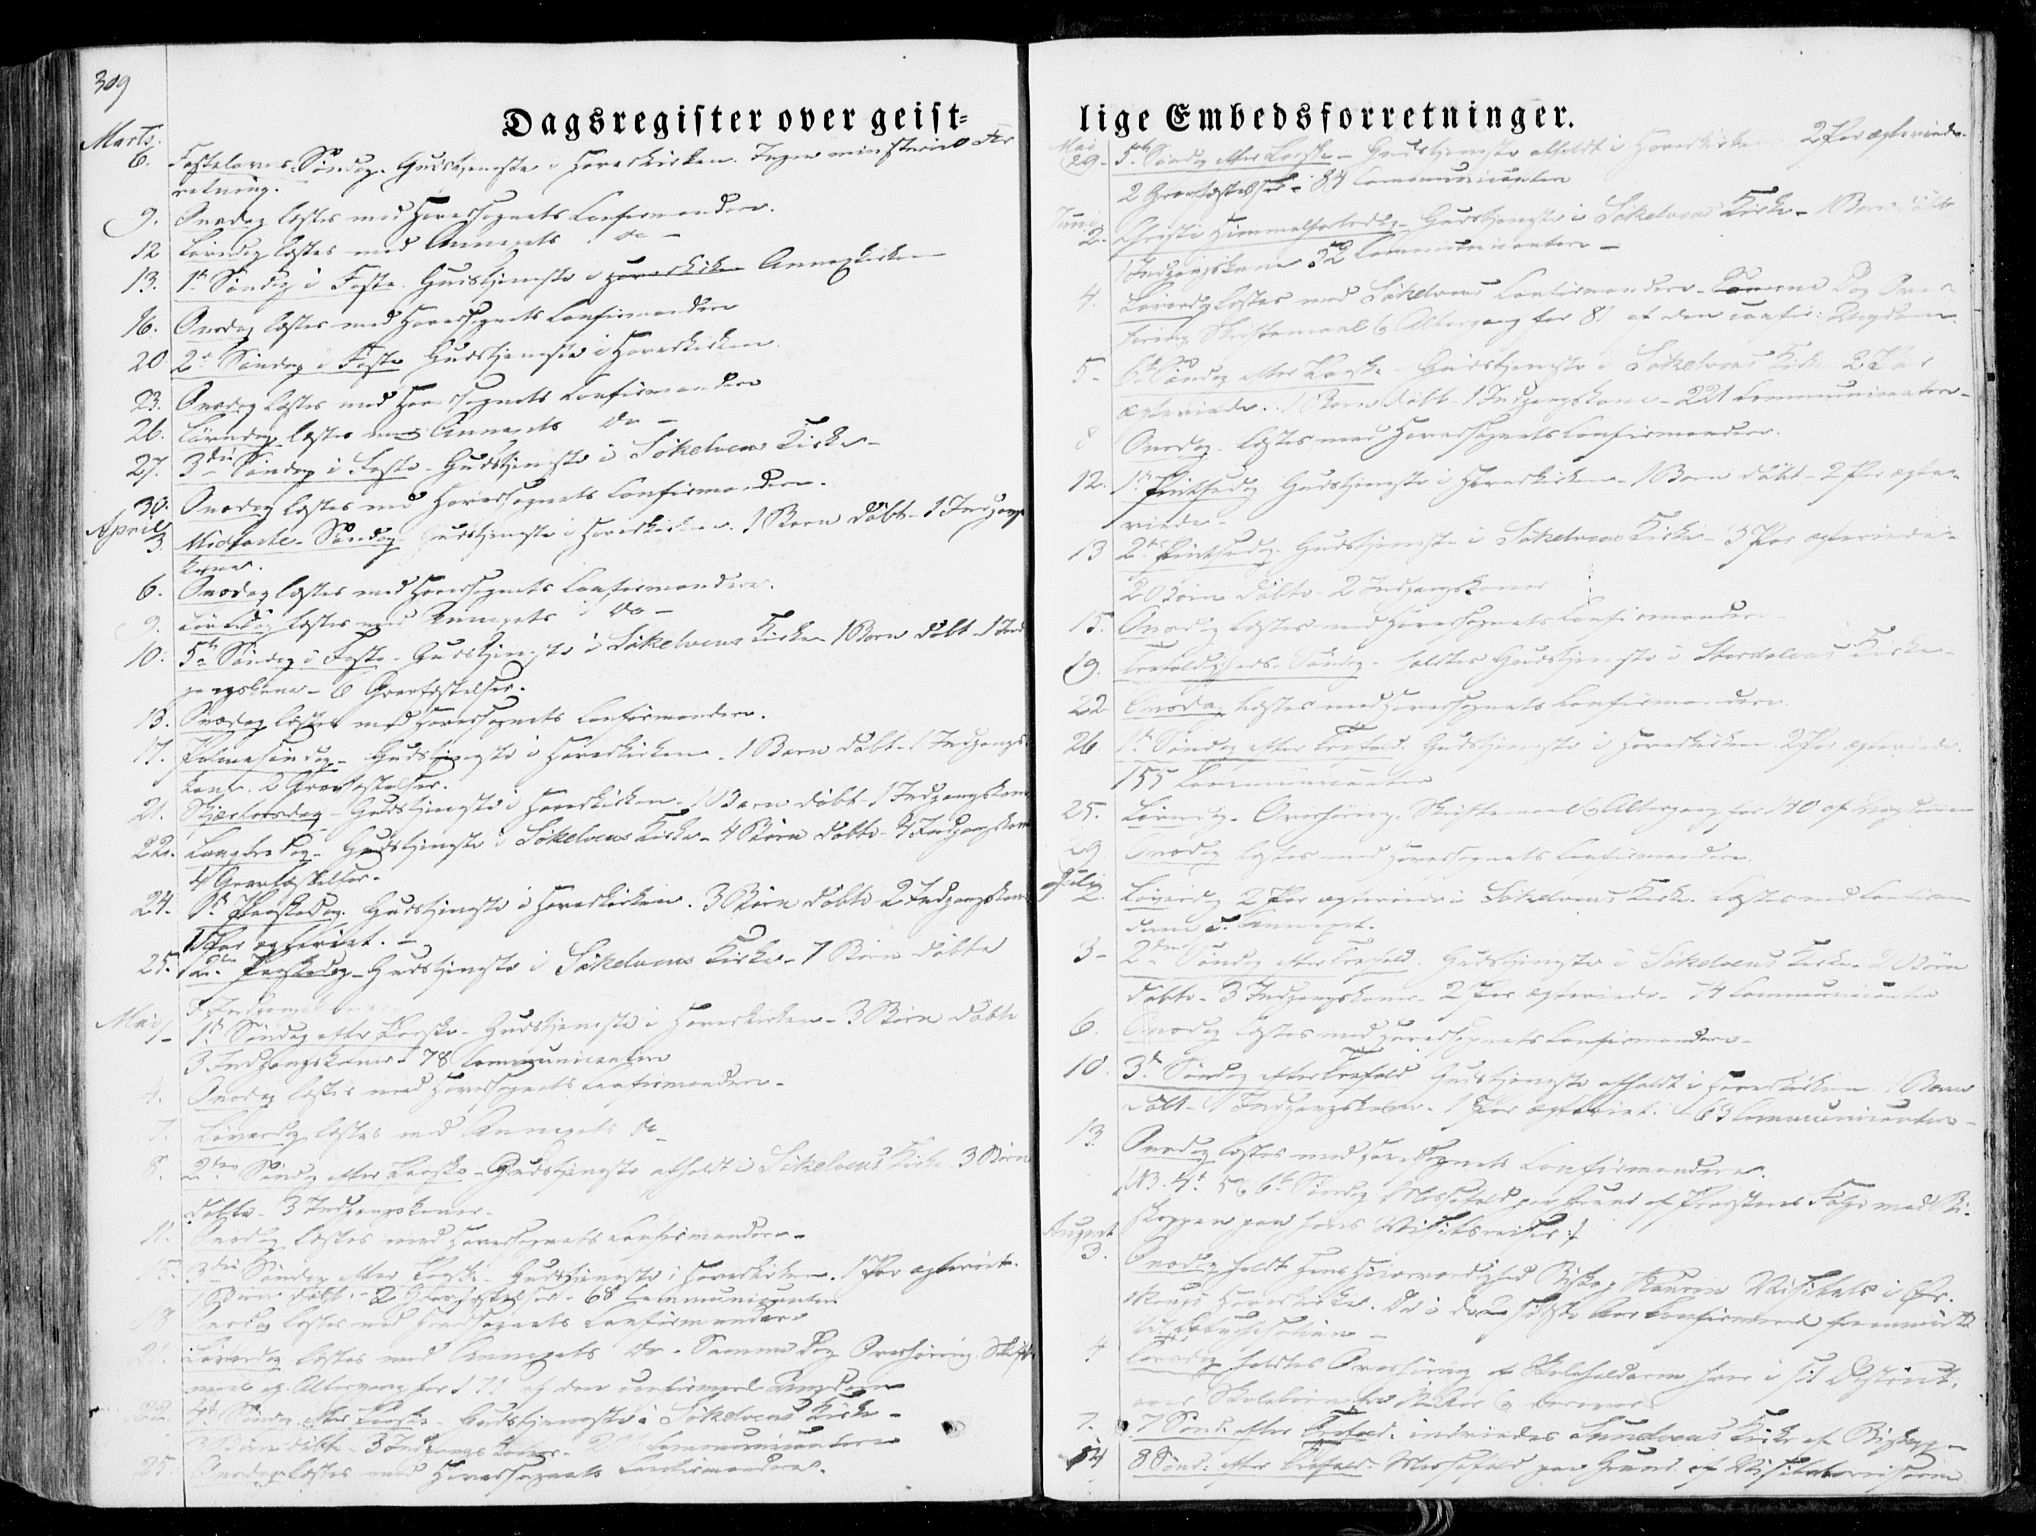 309
Dagsregister over geist=
Marts.
6. Fastelavns-Søndag. Gudstjeneste i Hovedkirken. Ingen ministeriel For
retning.
9. Onsdag læstes med Hovedsognets Confirmander.
12 Løverdag læstes med Annexets do –
13. 1ste Søndag i Faste. Gudstjeneste i Hovedkirken Annexkirken
16. Onsdag læstes med Hovedsognets Confirmander
20 2den Søndag i Faste Gudstjeneste i Hovedkirken.
23. Onsdag læstes med Hovedsognets Confirmander
26. Løverdag læstes med Annexets do –
27. 3die Søndag i Faste – Gudstjeneste i Søkelvens Kirke –
30. Onsdag læstes med Hovedsognets Confirmander.
April
3. Midfaste-Søndag. Gudstjeneste i Hovedkirken. 1 Barn døbt – 1 Indgangs
kone.
6. Onsdag læstes med Hovedsognets Confirmander.
9. Løverdag læstes med Annexets do –
10. 5te Søndag i Faste – Gudstjeneste i Søkelvens Kirke – 1 Barn døbt – 1 Ind
gangskone – 6 Gravfæstelser.
13. Onsdag læstes med Hovedsognets Confirmander.
17. Palmesøndag – Gudstjeneste i Hovedkirken – 1 Barn døbt – 1 Indgangs-
kone. 2 Gravfæstelser.
21. Skjærtorsdag – Gudstjeneste i Hovedkirken – 1 Barn døbt – 1 Indgangskone
22. Langfredag – Gudstjeneste i Søkelvens Kirke – 4 Børn døbte – 4 Indgangskoner
4 Gravfæstelser.
24. 1ste Paaskedag. Gudstjeneste i Hovedkirken. 3 Børn døbte 2 Indgangskoner
1 Par ægteviet. –
25. 2den Paaskedag – Gudstjeneste i Søkelvens Kirke – 7 Børn døbte
Indgangskoner
Mai 1 – 1ste Søndag efter Paaske – Gudstjeneste i Hovedkirken – 3 Børn døbte
3 Indgangskoner – 78 Communicanter
4. Onsdag læstes med Hovedsognets Confirmander –
7. Løverdag læstes med Annexets do –
8. 2den Søndag efter Paaske – Gudstjeneste afholdt i Søkelvens Kirke 3 Børn
døbte – 3 Indgangskoner.
11. Onsdag læstes med Hovedsognets Confirmander –
15. 3die Søndag efter Paaske – Gudstjeneste i Hovedkirken. 1 Par ægteviet.
1 Barn døbt. – 2 Gravfæstelser – 68 Communicanter
18 Onsdag læstes med Hovedsognets Confirmander
21. Løverdag læstes med Annexets do – Samme Dag Overhøring, Skrifte
maal og Altergang for 171 af den confirmerede Ungdom
22. 4de Søndag efter Paaske – Gudstjeneste i Søkelvens Kirke –
3 Børn døbte – 3 Indgangskoner – Communicanter
25. Onsdag læstes med Hovedsognets Confirmander.
lige Embedsforretninger.
Mai
29. 5te Søndag efter Paaske – Gudstjeneste afholdt i Hovedkirken 2 Par ægteviede –
2 Gravfæstelser – 84 Communicanter
Juni
2. Christi Himmelfartsdag – Gudstjeneste i Søkelvens Kirke – 1 Barn døbt
1 Indgangskone 52 Communicanter –
4. Løverdag læstes med Søkelvens Confirmander – Samme Dag Over-
høring Skriftemaal & Altergang for 81 af den confir: Ungdom.
5 – 6te Søndag efter Paaske – Gudstjeneste i Søkelvens Kirke 2 Par
ægteviede. 1 Barn døbt – 1 Indgangskone – 221 Communicanter –
8 Onsdag – læstes med Hovedsognets Confirmander.
12. 1ste Pintsedag Gudstjeneste i Hovedkirken – 1 Barn døbt – 2 Par ægte-
viede –
13 2den Pintsedag. Gudstjeneste i Søkelvens Kirke – 3 Par ægteviede –
2 Børn døbte – 2 Indgangskoner
15. Onsdag læstes med Hovedsognets Confirmander –
19. Trefoldigheds-Søndag – holdtes Gudstjeneste i Stordalens Kirke –
22 Onsdag læstes med Hovedsognets Confirmander.
26. 1ste Søndag efter Trefold. Gudstjeneste i Hovedkirken. 2 Par ægteviede.
155 Communicanter
25. Løverdag – Overhøring, Skriftemaal & Altergang for 140 af Ungdommen
29 Onsdag læstes med Hovedsognets Confirmander.
Julij
2. Løverdag 2 Par ægteviede i Søkelvens Kirke. læstes med Confirman
derne f. Annexet.
3 – 2den Søndag efter Trefold. Gudstjeneste i Søkelvens Kirke 2 Børn
døbte – 3 Indgangskoner – 2 Par ægteviede – 74 Communicanter
6. Onsdag læstes med Hovedsognets Confirmander –
10. 3die Søndag efter Trefold Gudstjeneste afholdt i Hovedkirken 1 Barn
døbt – 1 Indgangskone – 1 Par ægteviet. – 63 Communicanter –
13. Onsdag læstes med Hovedsognets Confirmander.
NB. 4de 5te & 6te Søndag Messefald paa Grund af Provstens Følge med Bi-
skoppen paa hans Visitatsreise. /
August
3. Onsdag holdt Hans Høiærværdighed Biskop Visitats i Ør-
skougs Hovedkirke. De i de sidste Aar Confirmerede fremmødte
til
4 Torsdag holdtes Overhøring af Skoleholderne hver i sit District,
over Skolebørnene
7. 7 Sønd. efter Trefold. indviedes Sundelvens Kirke af Biskoppen
14 8 Sønd: efter Trefold – Messefald paa Grund af Visitatsreisen